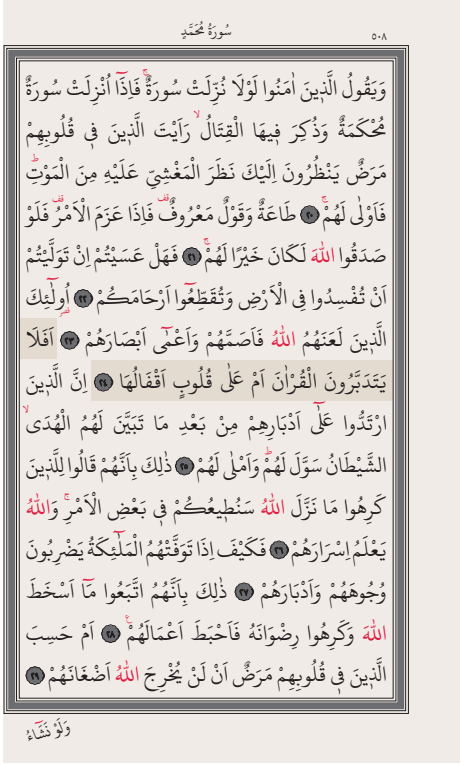 سُورَةُ مُحَمَّدٍ
٥٠٨
وَيَقُولُ الَّذ۪ينَ اٰمَنُوا لَوْلَا نُزِّلَتْ سُورَةٌۚ فَاِذَٓا اُنْزِلَتْ سُورَةٌ
مُحْكَمَةٌ وَذُكِرَ ف۪يهَا الْقِتَالُۙ رَاَيْتَ الَّذ۪ينَ ف۪ي قُلُوبِهِمْ
مَرَضٌ يَنْظُرُونَ اِلَيْكَ نَظَرَ الْمَغْشِيِّ عَلَيْهِ مِنَ الْمَوْتِۜ
فَاَوْلٰى لَهُمْۚ ﴿٢٠﴾ طَاعَةٌ وَقَوْلٌ مَعْرُوفٌ۠ فَاِذَا عَزَمَ الْاَمْرُ۠ فَلَوْ
صَدَقُوا اللّٰهَ لَكَانَ خَيْرًا لَهُمْۚ ﴿٢١﴾ فَهَلْ عَسَيْتُمْ اِنْ تَوَلَّيْتُمْ
اَنْ تُفْسِدُوا فِي الْاَرْضِ وَتُقَطِّعُٓوا اَرْحَامَكُمْ ﴿٢٢﴾ اُو۬لٰٓئِكَ
الَّذ۪ينَ لَعَنَهُمُ اللّٰهُ فَاَصَمَّهُمْ وَاَعْمٰٓى اَبْصَارَهُمْ ﴿٢٣﴾ اَفَلَا
يَتَدَبَّرُونَ الْقُرْاٰنَ اَمْ عَلٰى قُلُوبٍ اَقْفَالُهَا ﴿٢٤﴾ اِنَّ الَّذ۪ينَ
ارْتَدُّوا عَلٰٓى اَدْبَارِهِمْ مِنْ بَعْدِ مَا تَبَيَّنَ لَهُمُ الْهُدَىۙ
الشَّيْطَانُ سَوَّلَ لَهُمْۜ وَاَمْلٰى لَهُمْ ﴿٢٥﴾ ذٰلِكَ بِاَنَّهُمْ قَالُوا لِلَّذ۪ينَ
كَرِهُوا مَا نَزَّلَ اللّٰهُ سَنُط۪يعُكُمْ ف۪ي بَعْضِ الْاَمْرِۚ وَاللّٰهُ
يَعْلَمُ اِسْرَارَهُمْ ﴿٢٦﴾ فَكَيْفَ اِذَا تَوَفَّتْهُمُ الْمَلٰٓئِكَةُ يَضْرِبُونَ
وُجُوهَهُمْ وَاَدْبَارَهُمْ ﴿٢٧﴾ ذٰلِكَ بِاَنَّهُمُ اتَّبَعُوا مَٓا اَسْخَطَ
اللّٰهَ وَكَرِهُوا رِضْوَانَهُ فَاَحْبَطَ اَعْمَالَهُمْ۟ ﴿٢٨﴾ اَمْ حَسِبَ
الَّذ۪ينَ ف۪ي قُلُوبِهِمْ مَرَضٌ اَنْ لَنْ يُخْرِجَ اللّٰهُ اَضْغَانَهُمْ ﴿٢٩﴾
وَلَوْ نَشَٓاءُ